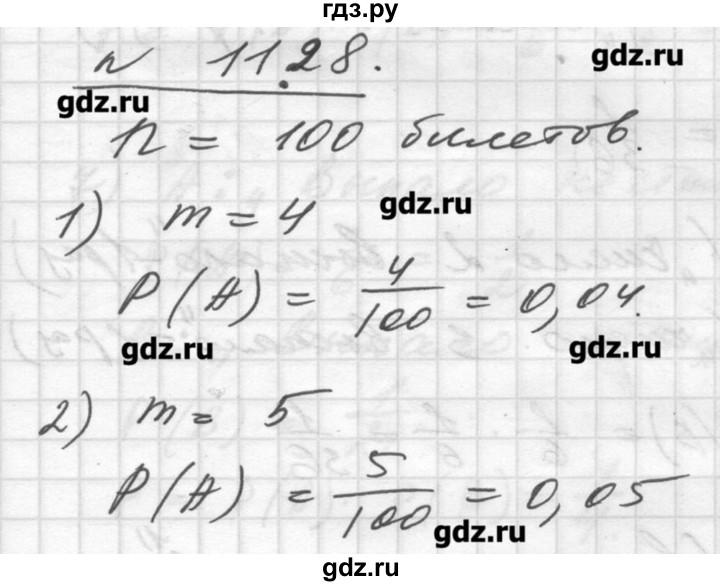 гдз.ру
n 1128.
gdz.ru
gdz.ru
n = 100 билетов.
1) m = 4
gdz.ru
P(A) = 4/100 = 0,04.
gdz.ru
gdz.ru
2) m = 5
P(A) = 5/100 = 0,05
gdz.ru
gdz.ru